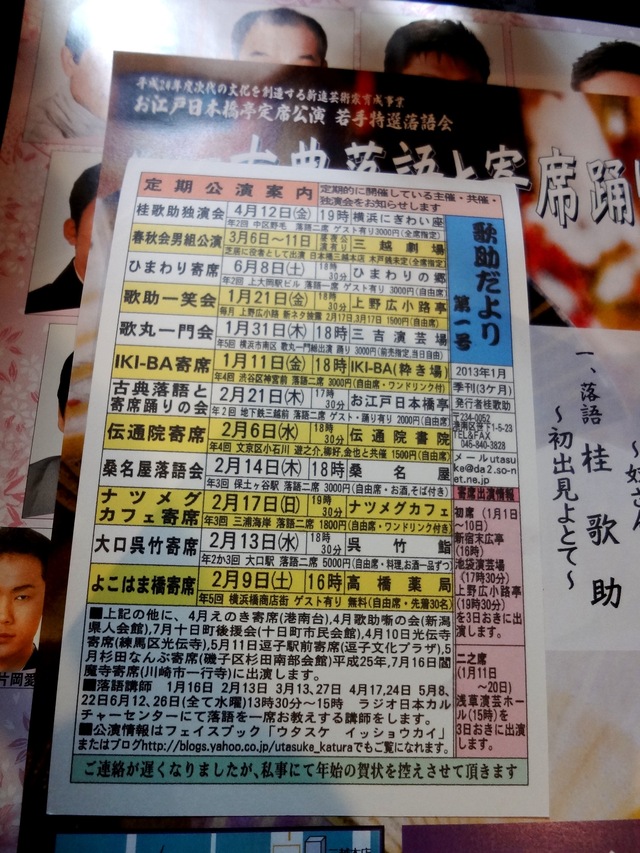 平成24年度次代の文化を創造する新進芸術家育成事業
お江戸日本橋亭定席公演 若手特選落語会
古典落語と寄席踊り
定期公演案内
定期的に開催している主催・共催・
独演会をお知らせします
桂歌助独演会 4月12日(金) 19時 横浜にぎわい座
年2回 中区野毛 落語二席 ゲスト有り3000円(全席指定)
春秋会男組公演 3月6日〜11日 三越劇場
芝居に役者として出演 日本橋三越本店 木戸銭未定(全席指定)
ひまわり寄席 6月8日(土) 18時30分 ひまわりの郷
年2回 上大岡駅ビル 落語一席 ゲスト有り 3000円(自由席)
歌助一笑会 1月21日(金) 18時30分 上野広小路亭
毎月 上野広小路 新ネタ披露 2月17日,3月17日 1500円(自由席)
歌丸一門会 1月31日(木) 18時 三吉演芸場
年5回 横浜市南区 歌丸一門総出演 踊り 3000円(前売指定,当日自由)
IKI-BA寄席 1月11日(金) 18時 IKI-BA(粋き場)
年4回 渋谷区神宮前 落語二席 3000円(自由席・ワンドリンク付)
古典落語と
寄席踊りの会 2月21日(木) 17時30分 お江戸日本橋亭
年2回 地下鉄三越前 落語二席 ゲスト・踊り有り 2000円(自由席)
伝通院寄席 2月6日(水) 18時30分 伝通院書院
年4回 文京区小石川 遊之介,柳好,金也と共催 1500円(自由席)
桑名屋落語会 2月14日(木) 18時 桑名屋
年3回 保土ヶ谷駅 落語二席 3000円(自由席・お酒,そば付き)
ナツメグ
カフェ寄席 2月17日(日) 19時30分 ナツメグカフェ
年3回 三浦海岸 落語二席 1800円(自由席・ワンドリンク付き)
大口呉竹寄席 2月13日(水) 18時30分 呉竹鮨
年2か3回 大口駅 落語二席 5000円(自由席・料理,お酒一品ずつ)
よこはま橋寄席 2月9日(土) 16時 高橋薬局
年5回 横浜橋商店街 ゲスト有り 無料(自由席・先着30名)
■上記の他に、4月えのき寄席(港南台),4月歌助噺の会(新潟
県人会館),7月十日町後援会(十日町市民会館),4月10日光伝寺
寄席(練馬区光伝寺),5月11日逗子駅前寄席(逗子文化プラザ),5
月杉田なんぶ寄席(磯子区杉田南部会館)平成25年,7月16日閻
魔寺寄席(川崎市一行寺)に出演します。
■落語講師 1月16日 2月13日 3月13、27日 4月17,24日 5月8、
22日6月12、26日(全て水曜)13時30分〜15時 ラジオ日本カル
チャーセンターにて落語を一席お教えする講師をします。
■公演情報はフェイスブック「ウタスケ イッショウカイ」
またはブログhttp://blogs.yahoo.co.jp/utasuke_katuraでもご覧になれます。
ご連絡が遅くなりましたが、私事にて年始の賀状を控えさせて頂きます
歌助だより
第一号
2013年1月
季刊(3ケ月)
発行者桂歌助
〒234-0052
TEL&FAX
045-840-3828
メールutasu
ke@da2.so-n
et.ne.jp
寄席出演情報
初席(1月1日
〜10日)
新宿末広亭
(16時)
池袋演芸場
(17時30分)
上野広小路亭
(19時30分)
を3日おきに出
演します。
二之席
(1月11日
〜20日)
浅草演芸ホー
ル(15時)を
3日おきに出演
します。
一、落語 桂歌助
〜初出見よとて〜
片岡愛